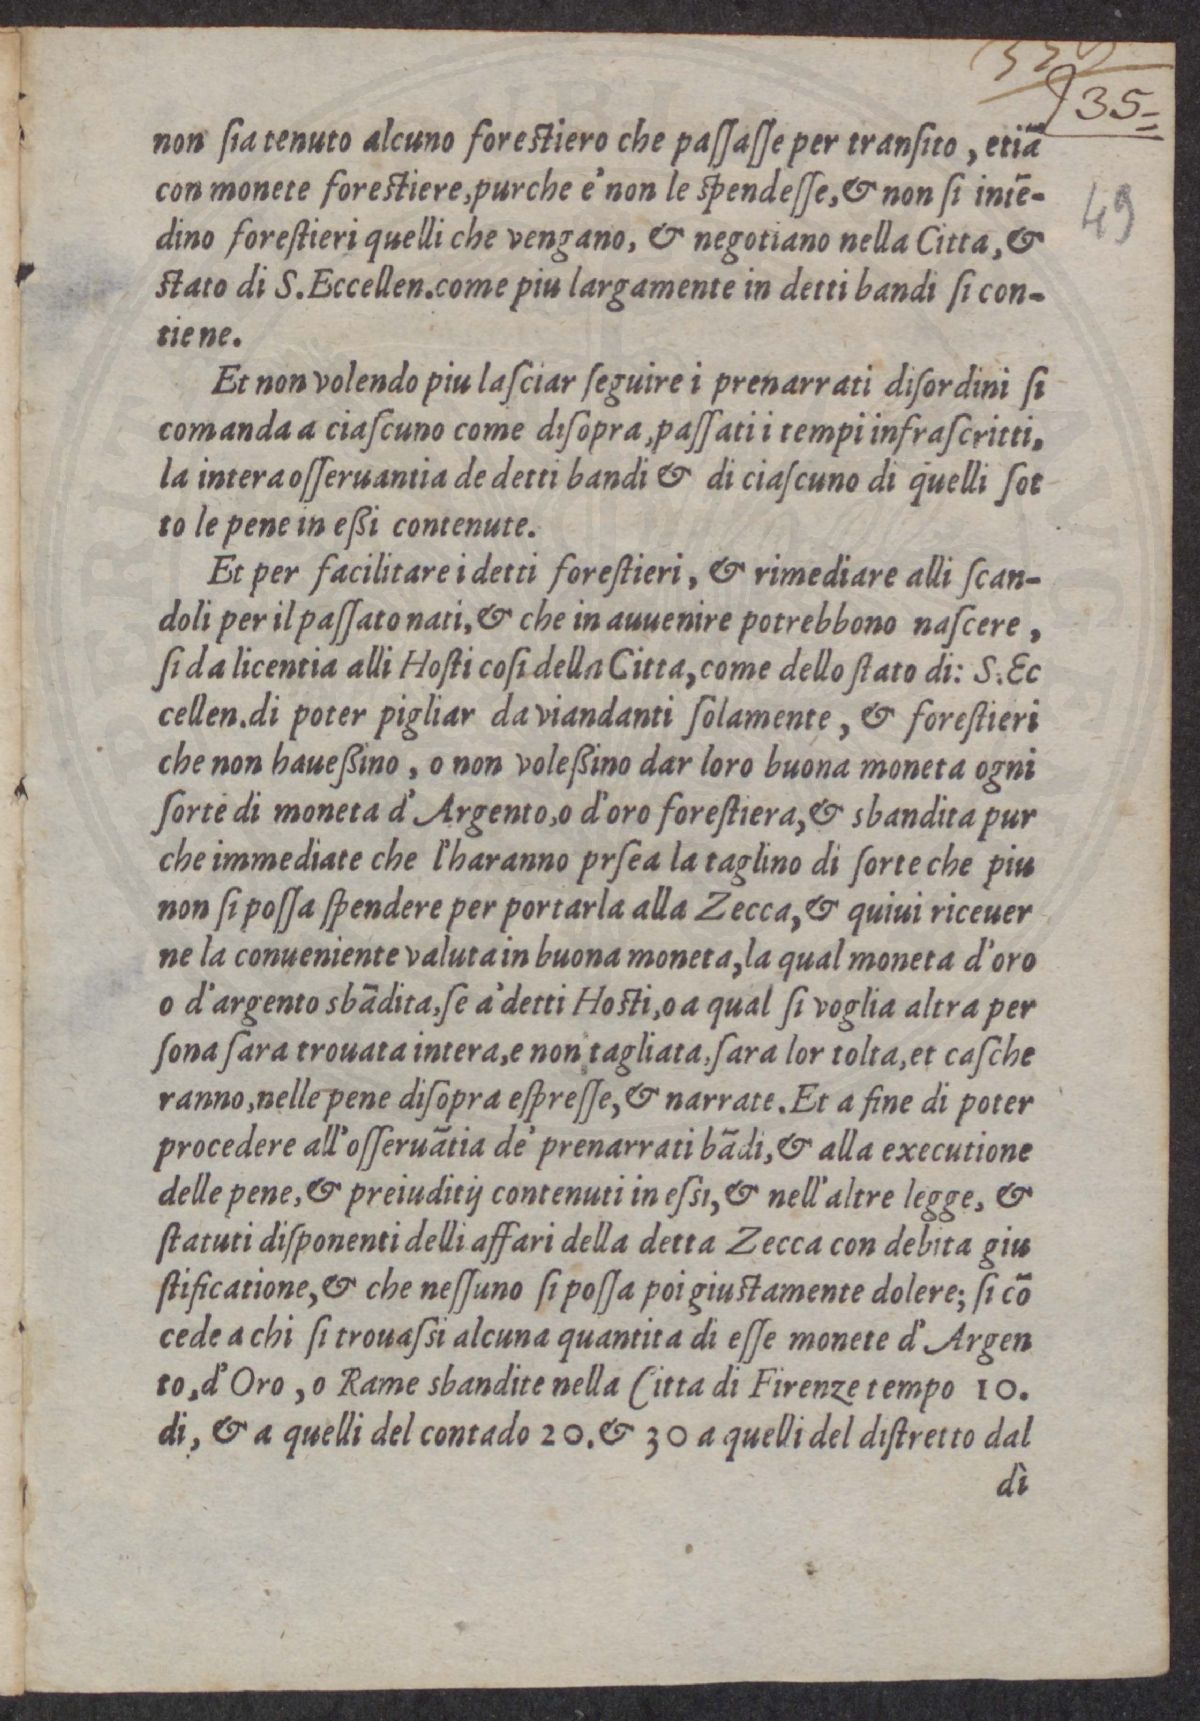 35
49
non ſia tenuto alcuno foreſtiero che paſſaſſe per tranſito, etiā
con monete foreſtiere, purche e' non le ſpendeſſe, & non ſi intē-
dino foreſtieri quelli che vengano, & negotiano nella Citta, &
ſtato di S. Eccellen. come piu largamente in detti bandi ſi con-
tiene.
Et non volendo piu laſciar ſeguire i prenarrati diſordini ſi
comanda a ciaſcuno come diſopra, paſſati i tempi infraſcritti,
la intera oſſeruantia de detti bandi & di ciaſcuno di quelli ſot
to le pene in eßi contenute.
Et per facilitare i detti foreſtieri, & rimediare alli ſcan-
doli per il paſſato nati, & che in auuenire potrebbono naſcere,
ſi da licentia alli Hoſti coſi della Citta, come dello ſtato di: S. Ec
cellen. di poter pigliar da viandanti ſolamente, & foreſtieri
che non haueßino, o non voleßino dar loro buona moneta ogni
ſorte di moneta d'Argento, o d'oro foreſtiera, & sbandita pur
che immediate che l'haranno prſea la taglino di ſorte che piu
non ſi poſſa ſpendere per portarla alla Zecca, & quiui riceuer
ne la conueniente valuta in buona moneta, la qual moneta d'oro
o d'argento sbādita, ſe a' detti Hoſti, o a qual ſi voglia altra per
ſona ſara trouata intera, e non tagliata, ſara lor tolta, et caſche
ranno, nelle pene diſopra eſpreſſe, & narrate. Et a fine di poter
procedere all'oſſeruātia de' prenarrati bādi, & alla executione
delle pene, & preiuditij contenuti in eſsi, & nell'altre legge, &
ſtatuti diſponenti delli affari della detta Zecca con debita giu
ſtificatione, & che neſſuno ſi poſſa poi giuſtamente dolere; ſi cō
cede a chi ſi trouaſsi alcuna quantita di eſſe monete d'Argen
to, d'Oro, o Rame sbandite nella Citta di Firenze tempo 10.
di, & a quelli del contado 20. & 30 a quelli del diſtretto dal
dì